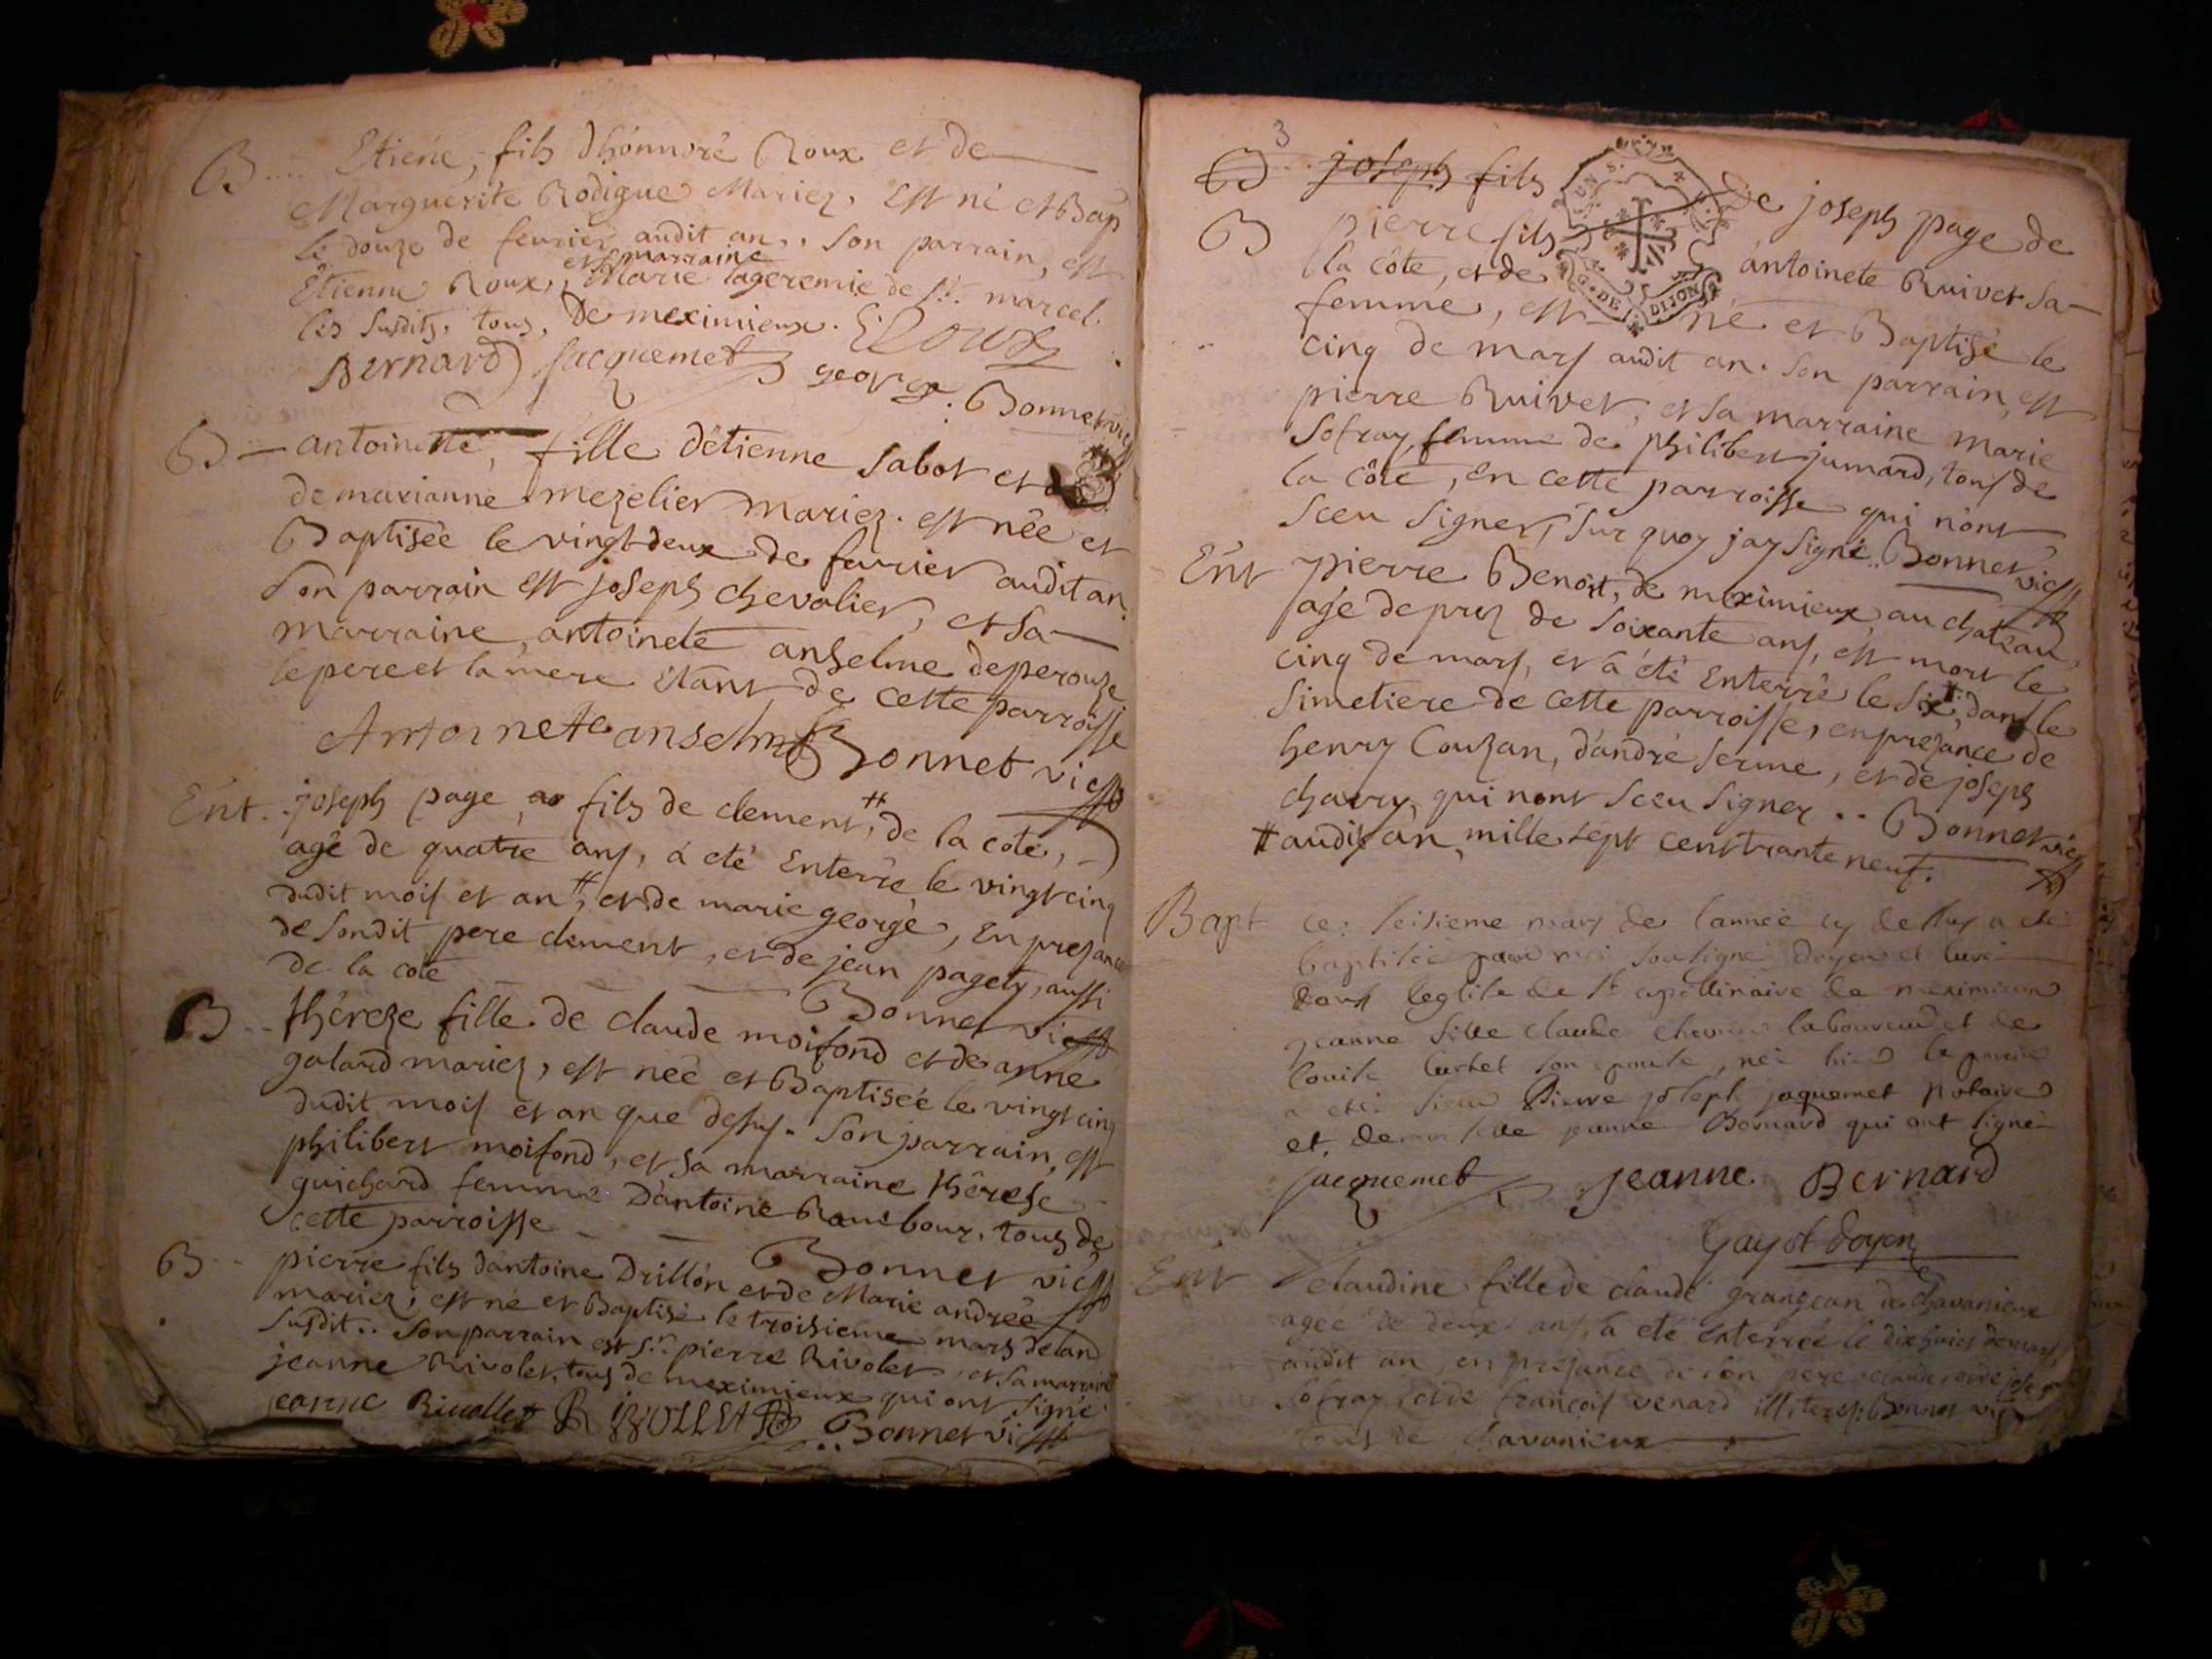 B.... Etiene, fils dhonnoré Roux et de
Marguerite Rodigue Mariez, est né et Bap
le douze de feurier audit an,. son parrain, est
et marraine
Etienne Roux, Marie lageremie de St. marcel.
les susdits, tous, De meximieux. E Roux
Bernard Jacquemet george. Bonnet vic
B antoinette, fille détienne Sabot et
de marianne mezelier mariez. est née et
Baptisée le vingt deux de feurier audit an.
Son parrain est joseph chevalier, et sa
marraine, antoinete anselme deperouze
le pere et la mere étant de cette parroisse
Antoinette anselme Bonnet vic
Ent. joseph page, fils de clement,# de la cote,
agé de quatre ans, a eté Enterré le vingt cinq
dudit mois et an,# et de marie george, En prezance
de sondit pere clement, et de jean pagety, aussi
de la cote Bonnet vic
B.. théreze fille de claude moifond et de anne
galand mariez, est née et Baptisée le vingt cinq
dudit mois et an que dessus. Son parrain, est
philibert moifond, et sa marraine thérese
guichard femme D'antoine Rambour, tous de
cette parroisse Bonnet vic
B.. pierre fils dantoine Drillon et de Marie andrée
mariez, est né et Baptisé le troisieme mars delan
susdit.. son parrain est Sr. pierre Rivolet, et sa marraine
jeanne Rivolet, tous de meximieux qui ont signé
jeanne Riuollet RIVOLLET .. Bonnet vic
3
B... joseph fils
B pierre fils De joseph page de
la côte, et de antoinete Ruivet sa
UN S.
G. DE DIJON
femme, est né et Baptisé le
cinq de mars audit an. Son parrain, est
pierre Ruivet, et sa marraine Marie
Sofray, femme de philibert jumard, tous de
la côte, en cette parroisse qui nont
sceu signer, sur quoy jay signé.. Bonnet vic
Ent pierre Benoit, de meximieux au chateau,
agé deprez de soixante ans, est mort le
cinq de mars, et a été Enterré le six,# dans le
Simetiere de cette parroisse, en prezance de
henry Couzan, dandré serme, et de joseph
charry, qui nont sceu signer.. Bonnet vic
# audit an, mille sept cent trante neuf.
Bapt ce seisieme mars de l'année cy dessus a eté
baptisée par moi soussigné Doyen et curé
dans leglise de St apollinaire de meximieux
jeanne fille claude laboureur et de
louise curtet son epouse, née hier le parrain
a eté sieur Pierre joseph jaquemet notaire
et demoiselle jeanne Bernard qui ont signé
jacquemet jeanne Bernard
Gayot doyen
Ent claudine fille de claude grangean de chavanieux
agée de deux ans, a eté enterrée le dixhuict de mars
audit an, en presance de son pere claude, de
Sofray, et de françois venard Bonnet vic
tous de chavanieux